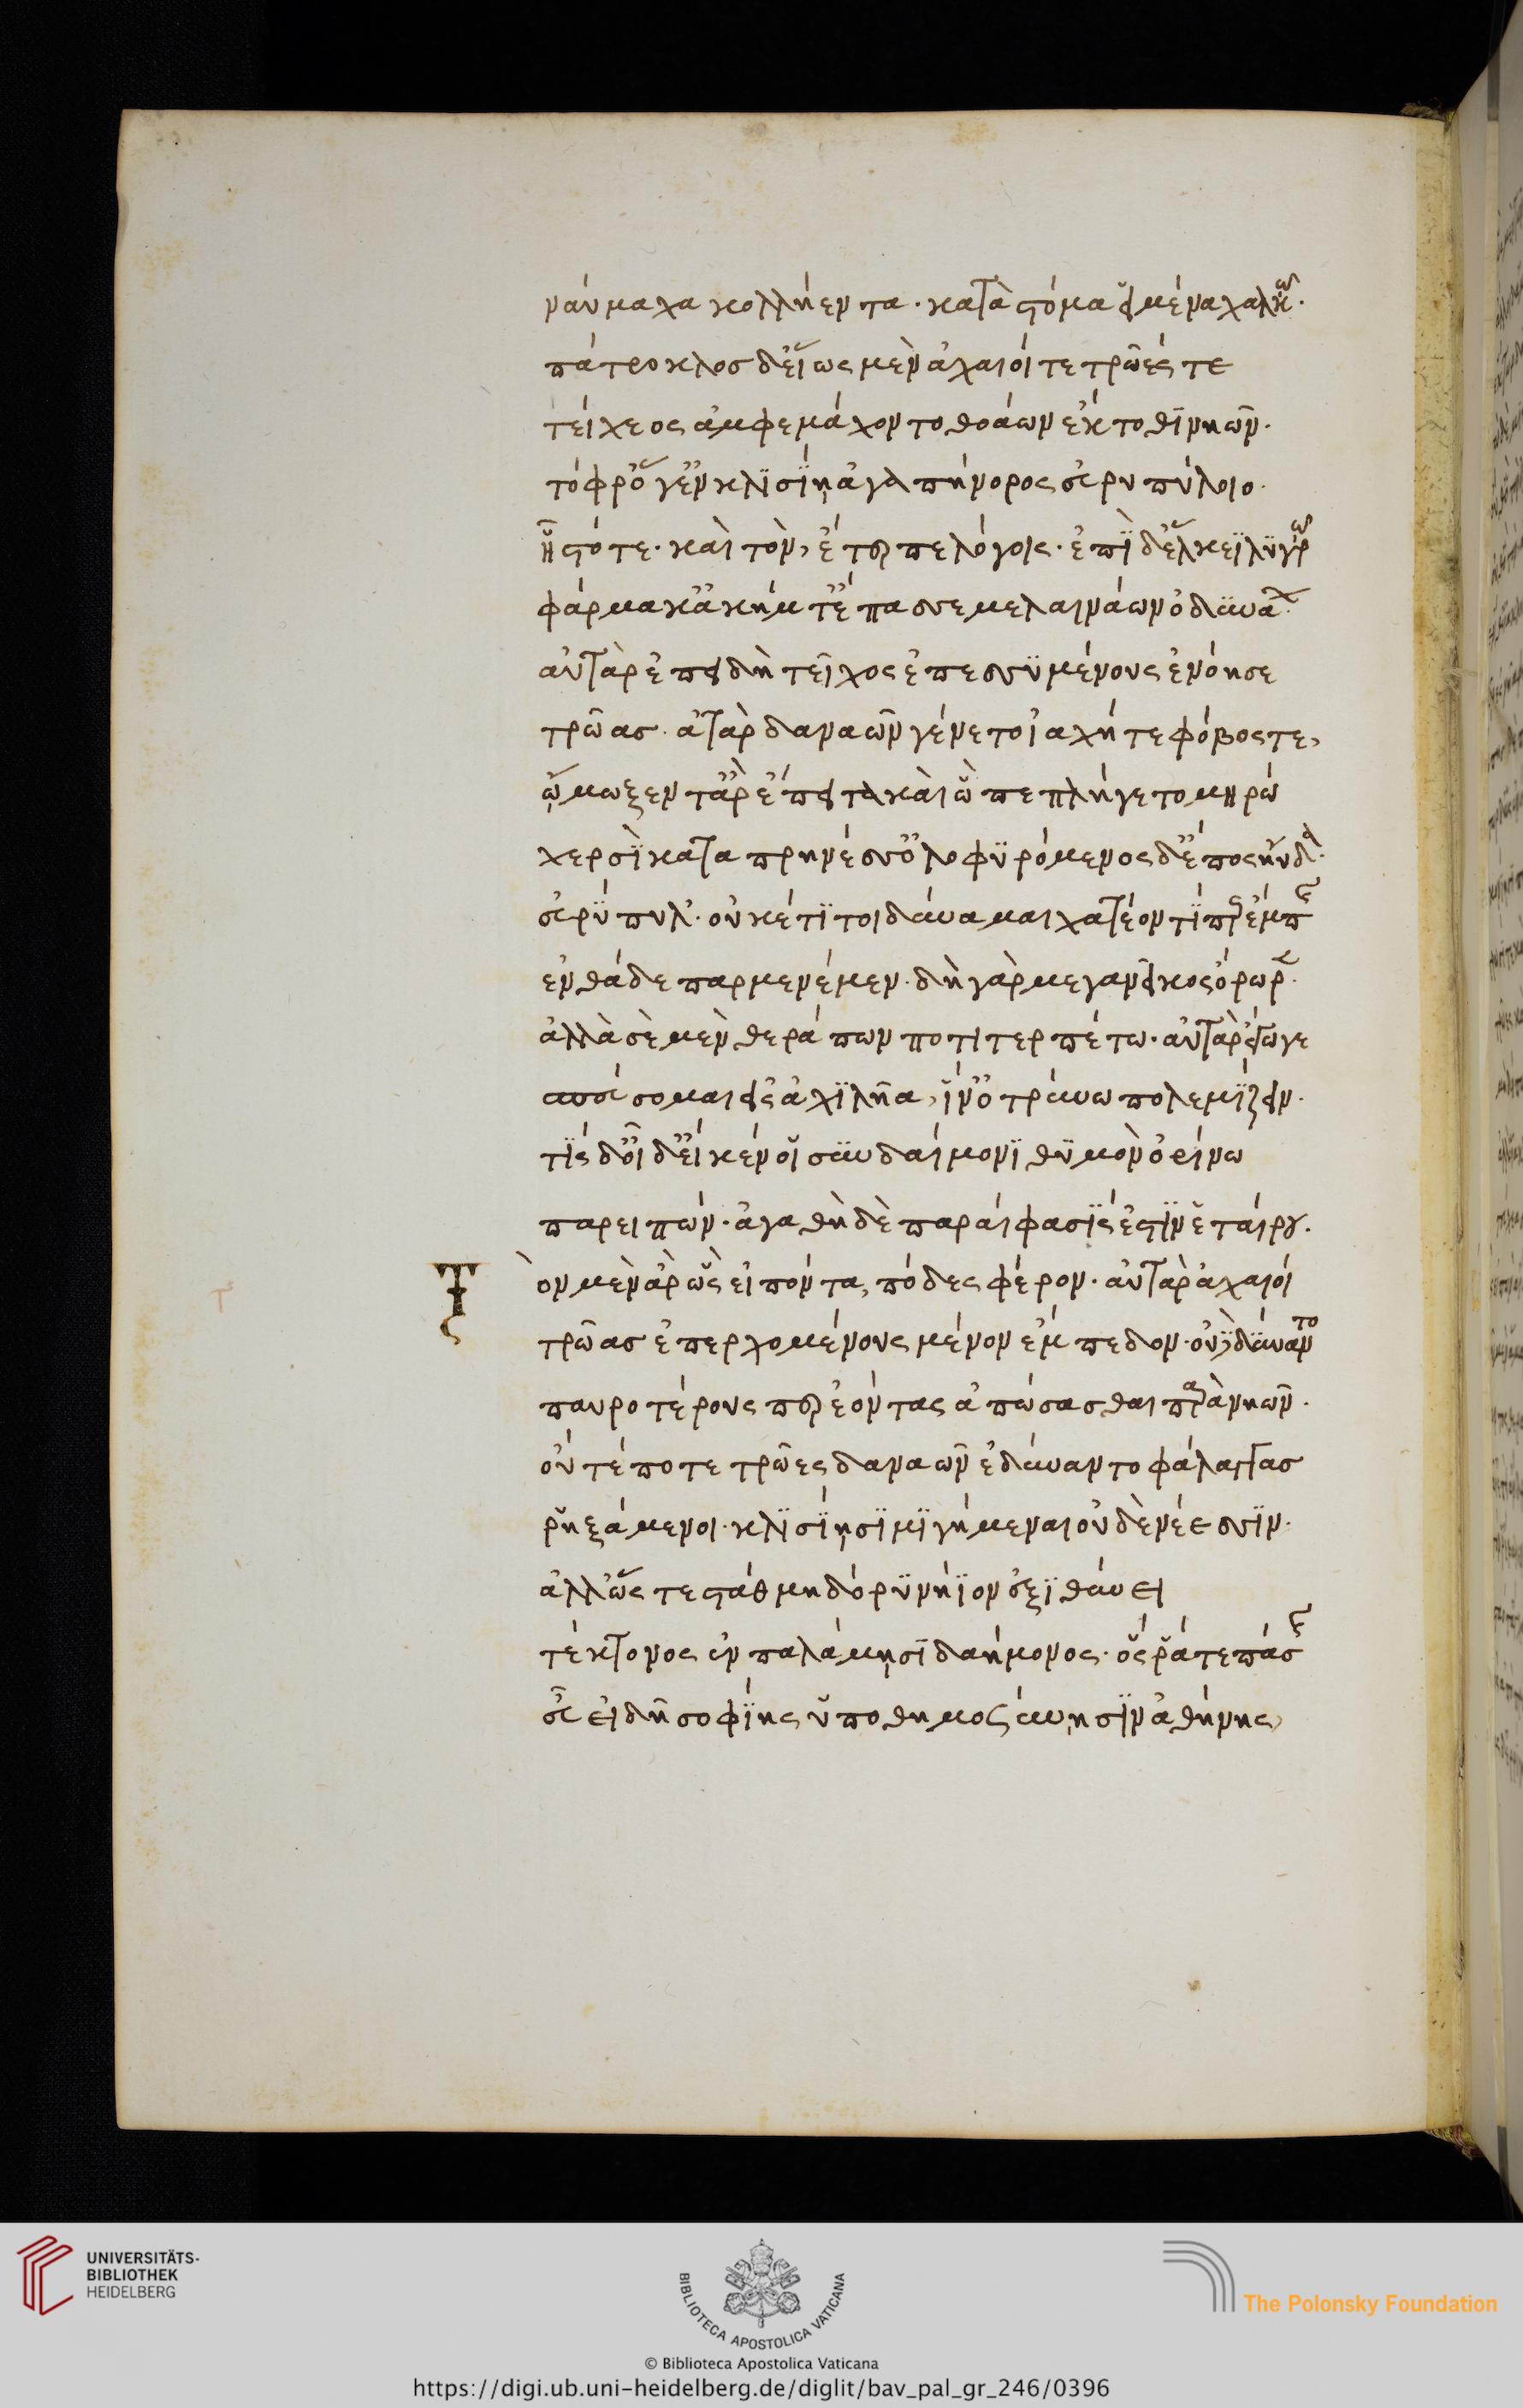 ναύμαχα κολλήεντα· κατὰ στόμα εἱμένα χαλκῶ·
πάτροκλοσ δ' εἵως μὲν ἀχαιοί τε τρῶές τε
τείχεος ἀμφεμάχοντο θοάων ἔκτοθι νηῶν·
τόφρ' ὅγ' ἐν κλισίη ἀγαπήνορος εὐρυπύλοιο·
ἧστό τε· καὶ τὸν, ἔτερπε λόγοις· ἐπὶ δ' ἕλκεϊ λυγρῶ
φάρμακ' ἀκήματ' ἔπασσε μελαινάων ὀδυνάων·
αὐτὰρ ἐπειδὴ τεῖχος ἐπεσσυμένους ἐνόησε
τρῶασ· ἀτὰρ δαναῶν γένετο ἰαχή τε φόβος τε,
ᾤμωξεν τ' ἄρ' ἔπειτα καὶ ὣ πεπλήγετο μηρώ
χερσὶ καταπρηνέσσ' ὀλοφυρόμενος δ' ἔπος ηὔδα·
εὐρύπυλ'· οὐκέτι τοι δύναμαι χατέοντί περ ἔμπης
ἐνθάδε παρμενέμεν· δὴ γὰρ μέγα νεῖκος ὄρωρεν·
ἀλλὰ σὲ μὲν θεράπων ποτιτερπέτω· αὐτὰρ ἔγωγε
σπεύσομαι εἰς ἀχιλῆα, ἵν' ὀτρύνω πολεμίζειν·
τίς δ' οἶδ' εἴ κέν οἱ σὺν δαίμονι θυμὸν ὀρίνω
παρειπών· ἀγαθὴ δὲ παραίφασίς ἐστιν ἑταίρου·
Τὸν μὲν ἄρ' ὣς εἰπόντα, πόδες φέρον· αὐτὰρ ἀχαιοί
τρῶασ ἐπερχομένους μένον ἔμπεδον· οὐδ' ἐδύναντο
παυροτέρους περ ἐόντας ἀπώσασθαι παρὰ νηῶν·
οὔτέ ποτε τρῶες δαναῶν ἐδύναντο φάλαγγασ
ῥηξάμενοι· κλισίησι μιγήμεναι οὐδὲ νέεσσιν·
ἀλλ' ὥς τε στάθμη δόρυ νήϊον ἐξιθύνει
τέκτονος ἐν παλάμησι δαήμονος· ὅς ῥά τε πάσης
εὖ εἰδῆ σοφίης ὑποθημοσύνησιν ἀθήνης,
UNIVERSITÄTS-
BIBLIOTHEK
HEIDELBERG
BIBLIOTECA APOSTOLICA VATICANA
The Polonsky Foundation
© Biblioteca Apostolica Vaticana
https://digi.ub.uni-heidelberg.de/diglit/bav_pal_gr_246/0396